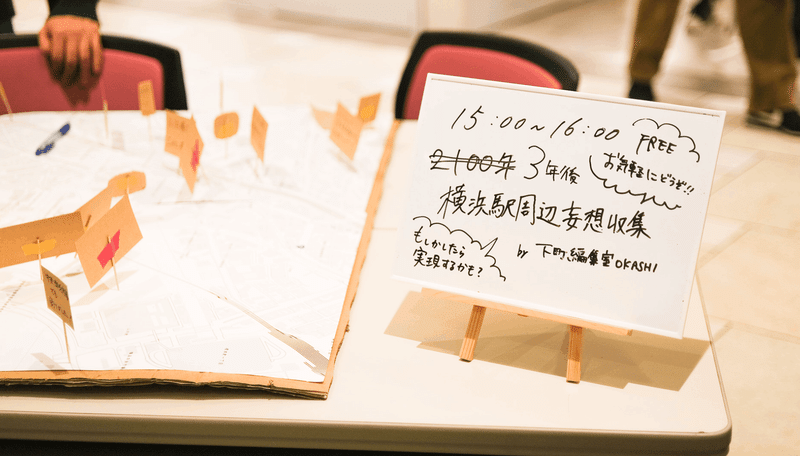 15:00~16:00
FREE
お気軽にどうぞ!!
2100年 3年後
横浜駅周辺妄想収集
もしかしたら
実現するかも?
by 下町編集室OKASHI